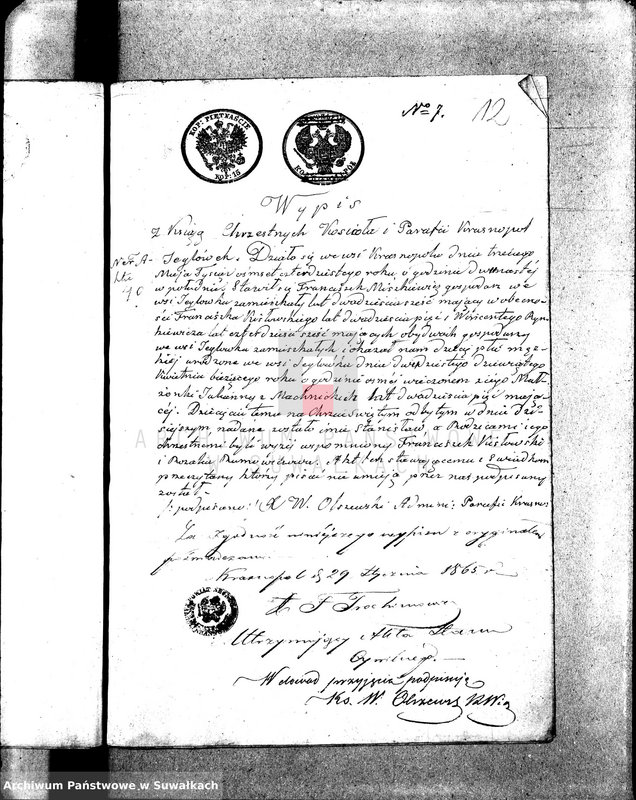 No 7.
12
KOP: PIĘTNAŚCIE
KOP: 15
Wypis
z Xiąg Chrzestnych Kościoła i Parafii Krasnopol
Jegłówek. Działo się we wsi Krasnopolu dnia trzeciego
Maja Tysiąc ośmset czterdziestego roku o godzinie dwunastej
w południe. Stawił się Franciszek Miszkiewicz gospodarz we
wsi Jegłówku zamieszkały lat dwadzieścia sześć mający w obecno-
ści Franciszka Kisłowskiego lat dwadzieścia pięć i Wincentego Ryn-
kiewicza lat czterdzieści sześć mających obydwóch gospodarzy
we wsi Jegłówku zamieszkałych i okazał nam dziecię płci męz-
kiej urodzone we wsi Jegłówku dnia dwudziestego dziewiątego
Kwietnia bieżącego roku o godzinie ósmej wieczorem z jego Mał-
żonki Julianny z Machnickich lat dwadzieścia pięć mają-
cej. Dziecięciu temu na Chrzcie Świętym odbytym w dniu dzi-
siejszym, nadane zostało imie Stanisław, a Rodzicami jego
chrzestnemi byli wyżej wspomniony Franciszek Kisłowski
i Rozalia Akt ten stawającemu i świadkom
przeczytany, którzy pisać nie umieją przez nas podpisany
został.
/: podpisano: X W. Olszewski Admini: Parafii Krasnop
Za zgodność niniejszego wypisu z oryginałem
poświadczam.
Krasnopol d. 29 Stycznia 1865 r.
X F
Utrzymujący Akta Stanu
Cywilnego.
W dowód przyjęcia podpisuję
Ks. W.
Archiwum Państwowe w Suwałkach